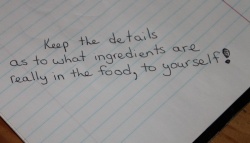 Keep the details
as to what ingredients are
really in the food, to yourself!